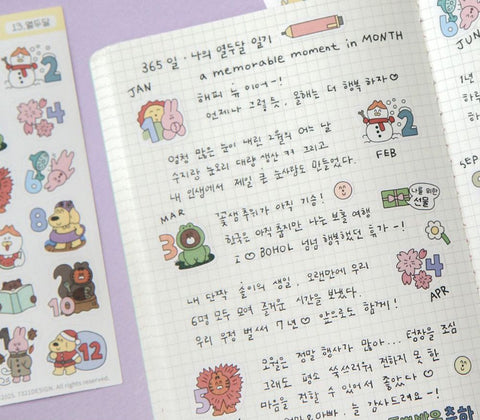 13.열두달
2
4
6
7
8
10
12
2025. 7321DESIGN. All rights reserved.
365일・나의 열두달 일기
a memorable moment in MONTH
JAN
해피 뉴 이어~!
언제나 그렇듯, 올해는 더 행복하자♡
1
2
FEB
엄청 많은 눈이 내린 2월의 어느 날
수지랑 눈오리 대량 생산 하고 그리고
내 인생에서 제일 큰 눈사람도 만들었다.
MAR
꽃샘추위가 아직 기승!
한국은 아직 춥지만 나는 보홀 여행
I ♡ BOHOL 넘넘 행복했던 휴가~!
3
나를 위한
선물
내 단짝 솔이의 생일. 오랜만에 우리
6명 모두 모여 즐거운 시간을 보냈다.
우리 우정 벌써 7년♡ 앞으로도 함께!
4
APR
5
오월은 정말 행사가 많아... 텅장을 조심
그래도 평소 쓰스러워 전하지 못 한
마음을 전할 수 있어서 좋았다☺
엄마&아빠 늘 감사드려요~!
JUN
1년
하루
SEP